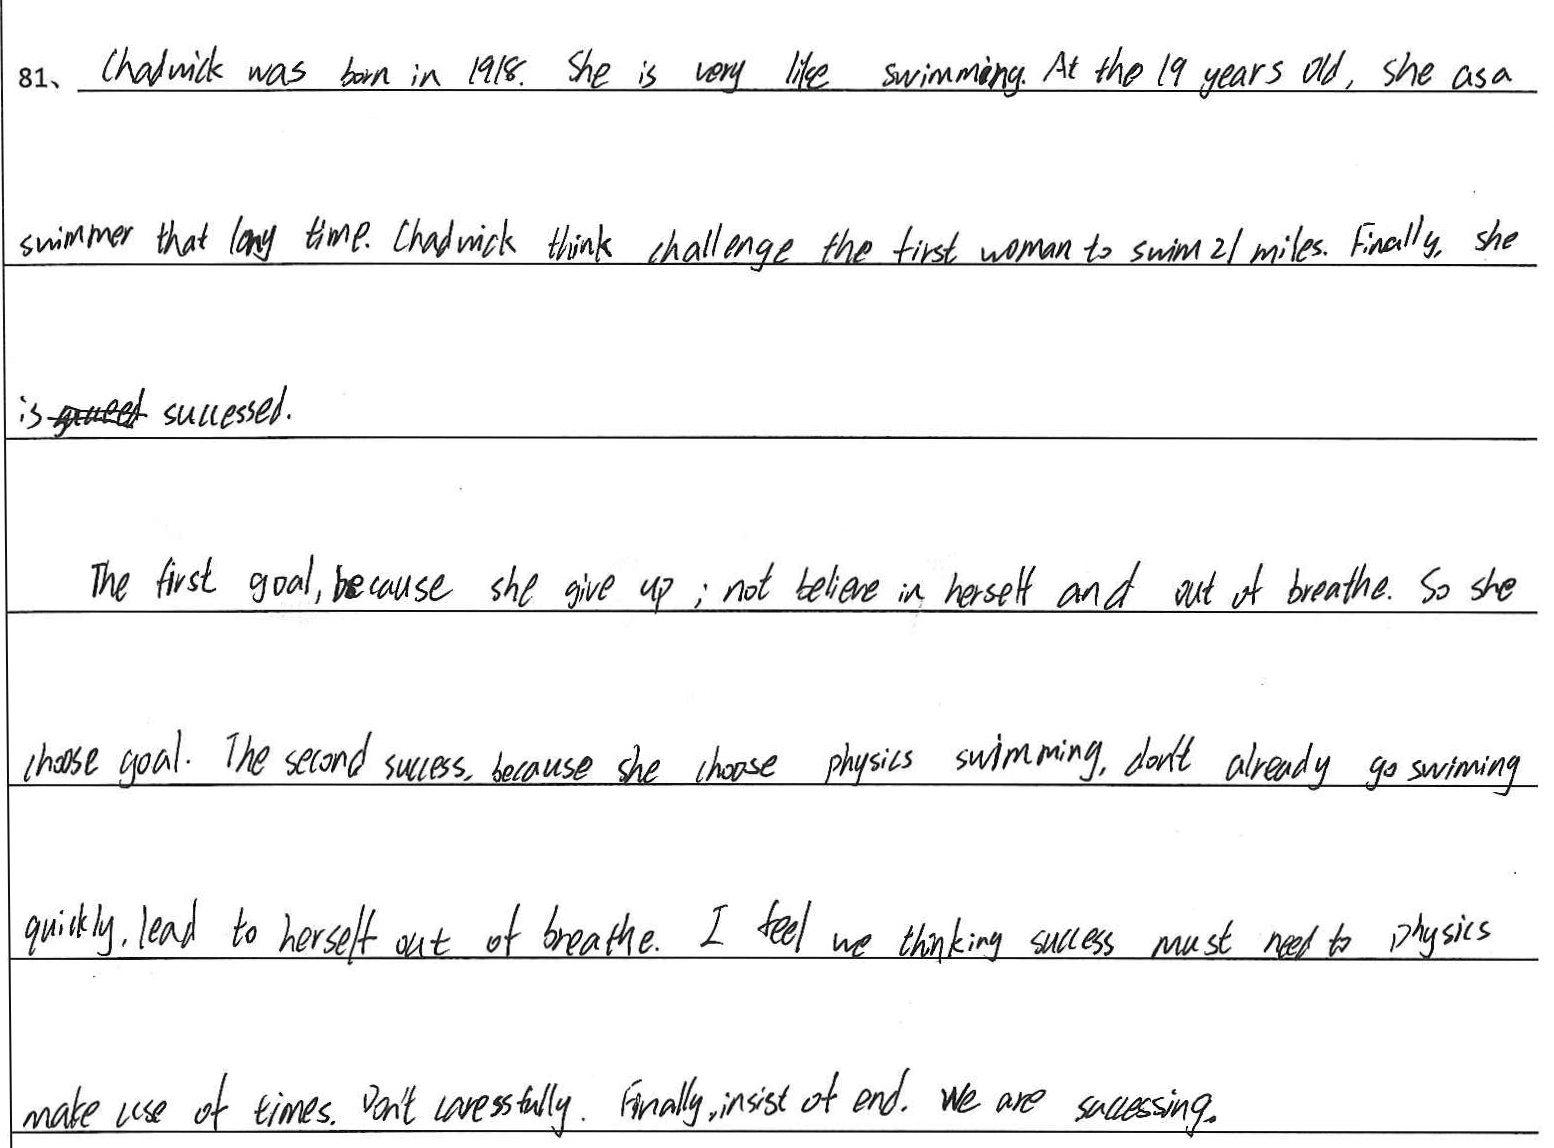 81、 Chadwick was born in 1918. She is very like swimming. At the 19 years old, she as a
swimmer that long time. Chadwick think challenge the first woman to swim 21 miles. Finally, she
is successed.
The first goal, because she give up ; not believe in herself and out of breathe. So she
choose goal. The second success, because she choose physics swimming, don't already go swiming
quickly, lead to herself out of breathe. I feel we thinking success must need to physics
make use of times. Don't caressfully. Finally, insist of end. We are successing.